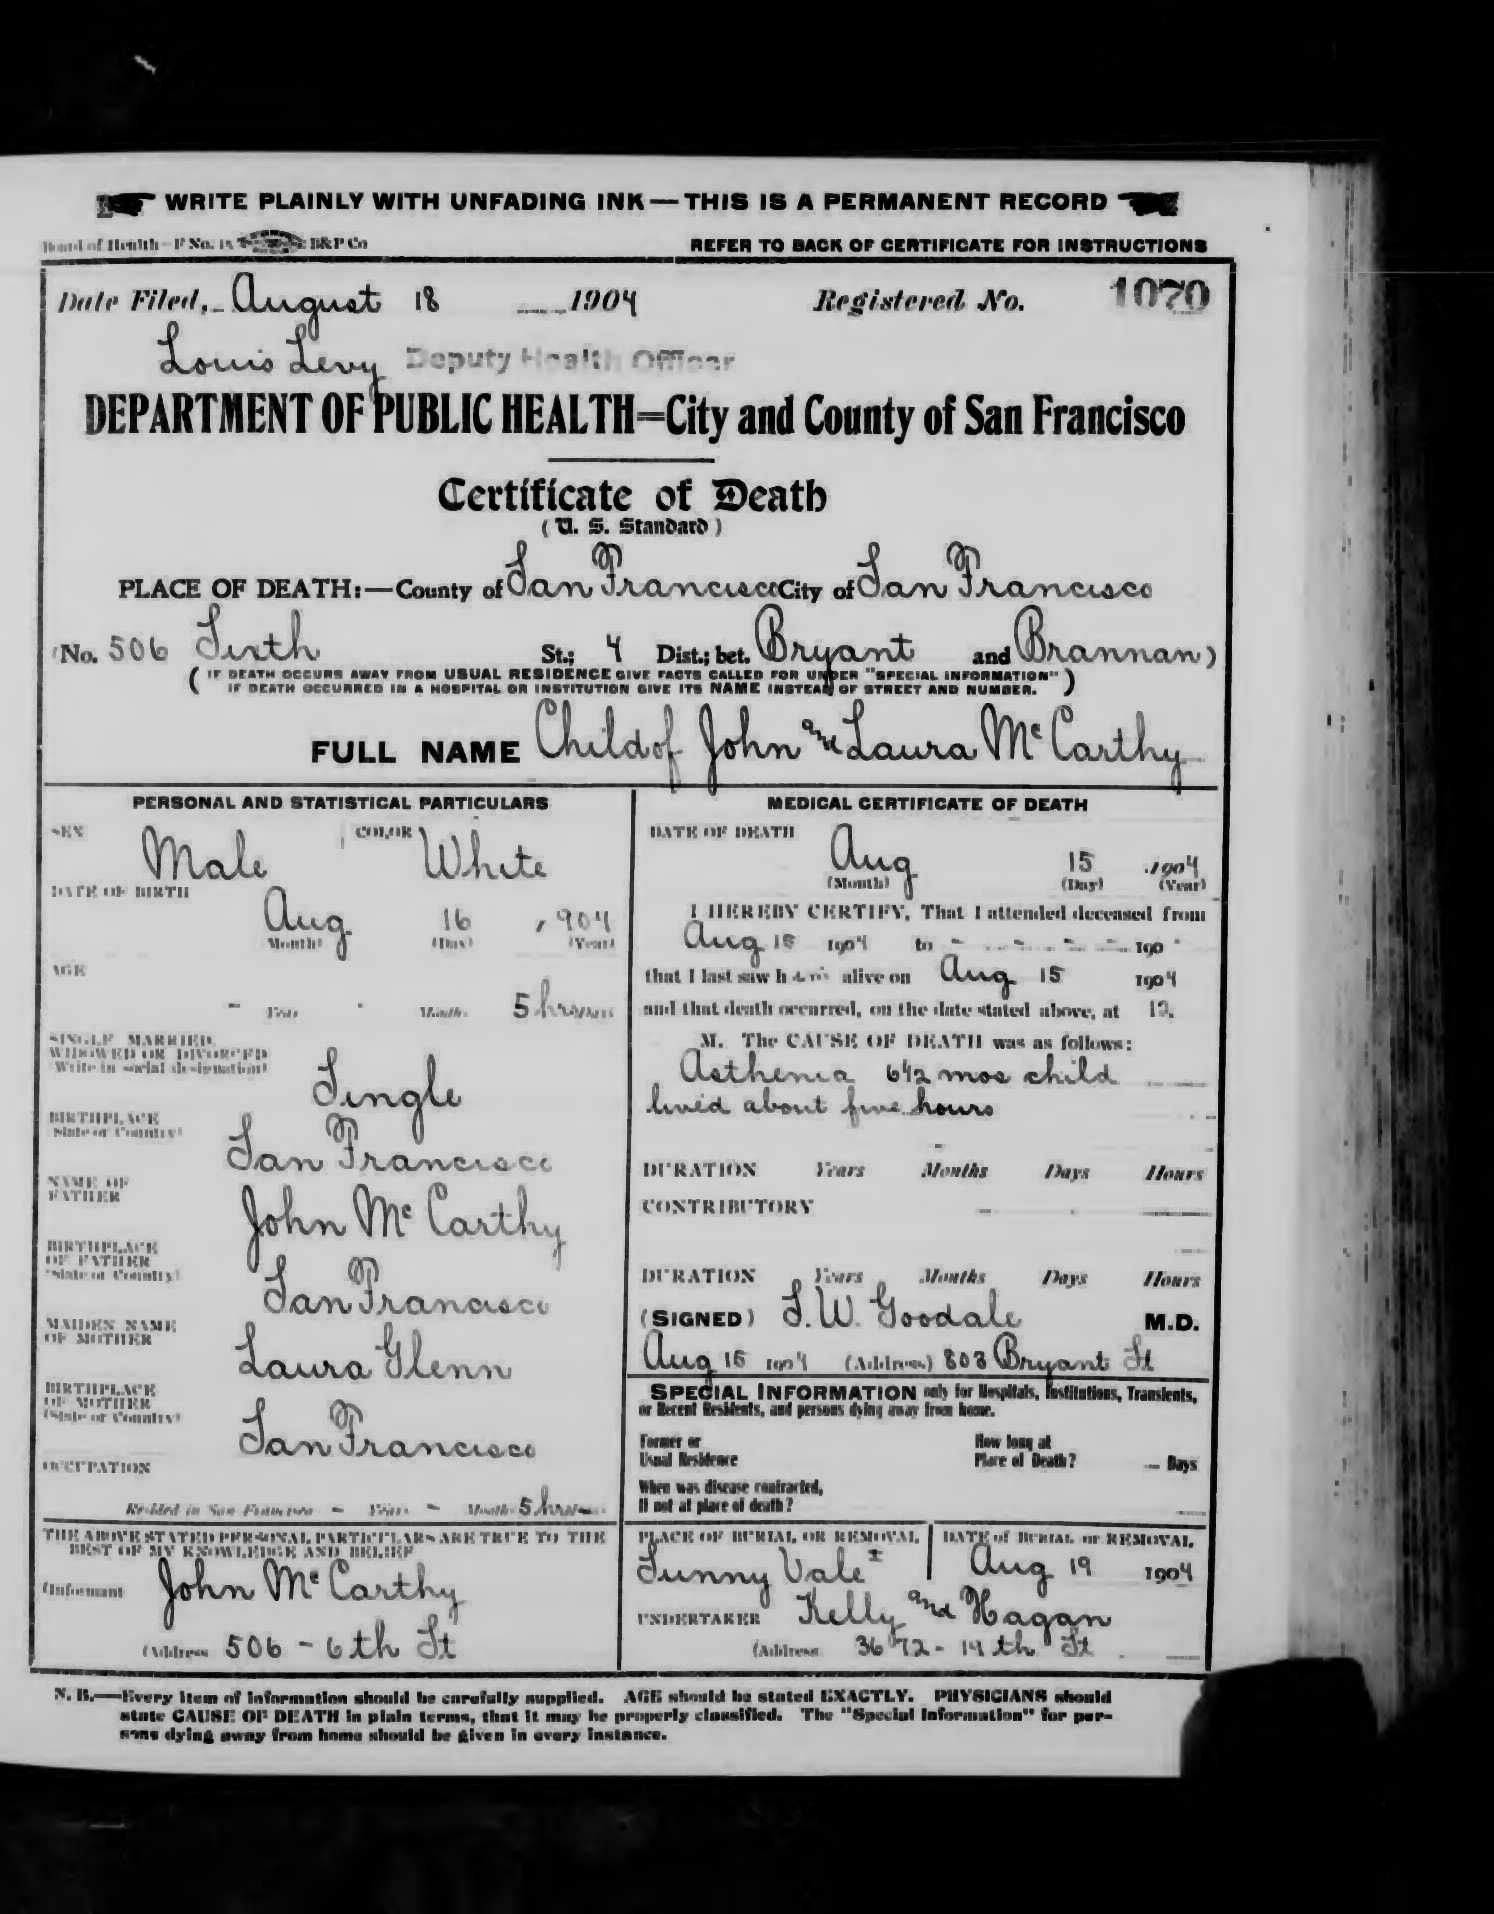 WRITE PLAINLY WITH UNFADING INK — THIS IS A PERMANENT RECORD
Board of Health—F No. 1 B&P Co
REFER TO BACK OF CERTIFICATE FOR INSTRUCTIONS
Date Filed, August 18 1904 Registered No. 1070
Louis Levy Deputy Health Officer
DEPARTMENT OF PUBLIC HEALTH=City and County of San Francisco
Certificate of Death
(U. S. Standard)
PLACE OF DEATH:—County of San Francisco City of San Francisco
(No. 506 Sixth St.; 4 Dist.; bet. Bryant and Brannan)
( IF DEATH OCCURS AWAY FROM USUAL RESIDENCE GIVE FACTS CALLED FOR UNDER "SPECIAL INFORMATION"
IF DEATH OCCURRED IN A HOSPITAL OR INSTITUTION GIVE ITS NAME INSTEAD OF STREET AND NUMBER. )
FULL NAME Child of John and Laura McCarthy
PERSONAL AND STATISTICAL PARTICULARS
SEX Male COLOR White
DATE OF BIRTH
Aug. 16, 904
(Month) (Day) (Year)
AGE
- Year Months 5 hrs Days
SINGLE MARRIED,
WIDOWED OR DIVORCED
(Write in social designation) Single
BIRTHPLACE
(State or Country) San Francisco
NAME OF
FATHER John McCarthy
BIRTHPLACE
OF FATHER
(State or Country) San Francisco
MAIDEN NAME
OF MOTHER Laura Glenn
BIRTHPLACE
OF MOTHER
(State or Country) San Francisco
OCCUPATION
Resided in San Francisco - Years - Months 5 hrs
THE ABOVE STATED PERSONAL PARTICULARS ARE TRUE TO THE
BEST OF MY KNOWLEDGE AND BELIEF
(Informant John McCarthy
(Address 506 - 6th St
MEDICAL CERTIFICATE OF DEATH
DATE OF DEATH
Aug 15 1904
(Month) (Day) (Year)
I HEREBY CERTIFY, That I attended deceased from
Aug 15 1904 to - - - - 190
that I last saw him alive on Aug 15 1904
and that death occurred, on the date stated above, at 12.
M. The CAUSE OF DEATH was as follows:
Asthenia 6 1/2 mos child
lived about five hours
DURATION Years Months Days Hours
CONTRIBUTORY
DURATION Years Months Days Hours
(SIGNED) S. W. Goodale M.D.
Aug 15 1904 (Address) 803 Bryant St
SPECIAL INFORMATION only for Hospitals, Institutions, Transients,
or Recent Residents, and persons dying away from home.
Former or
Usual Residence
How long at
Place of Death? — Days
When was disease contracted,
If not at place of death?
PLACE OF BURIAL OR REMOVAL
Sunny Vale
DATE of BURIAL or REMOVAL
Aug 19 1904
UNDERTAKER Kelly and Hagan
(Address 3672 - 19th St
N. B.—Every item of information should be carefully supplied. AGE should be stated EXACTLY. PHYSICIANS should
state CAUSE OF DEATH in plain terms, that it may be properly classified. The "Special Information" for per-
sons dying away from home should be given in every instance.